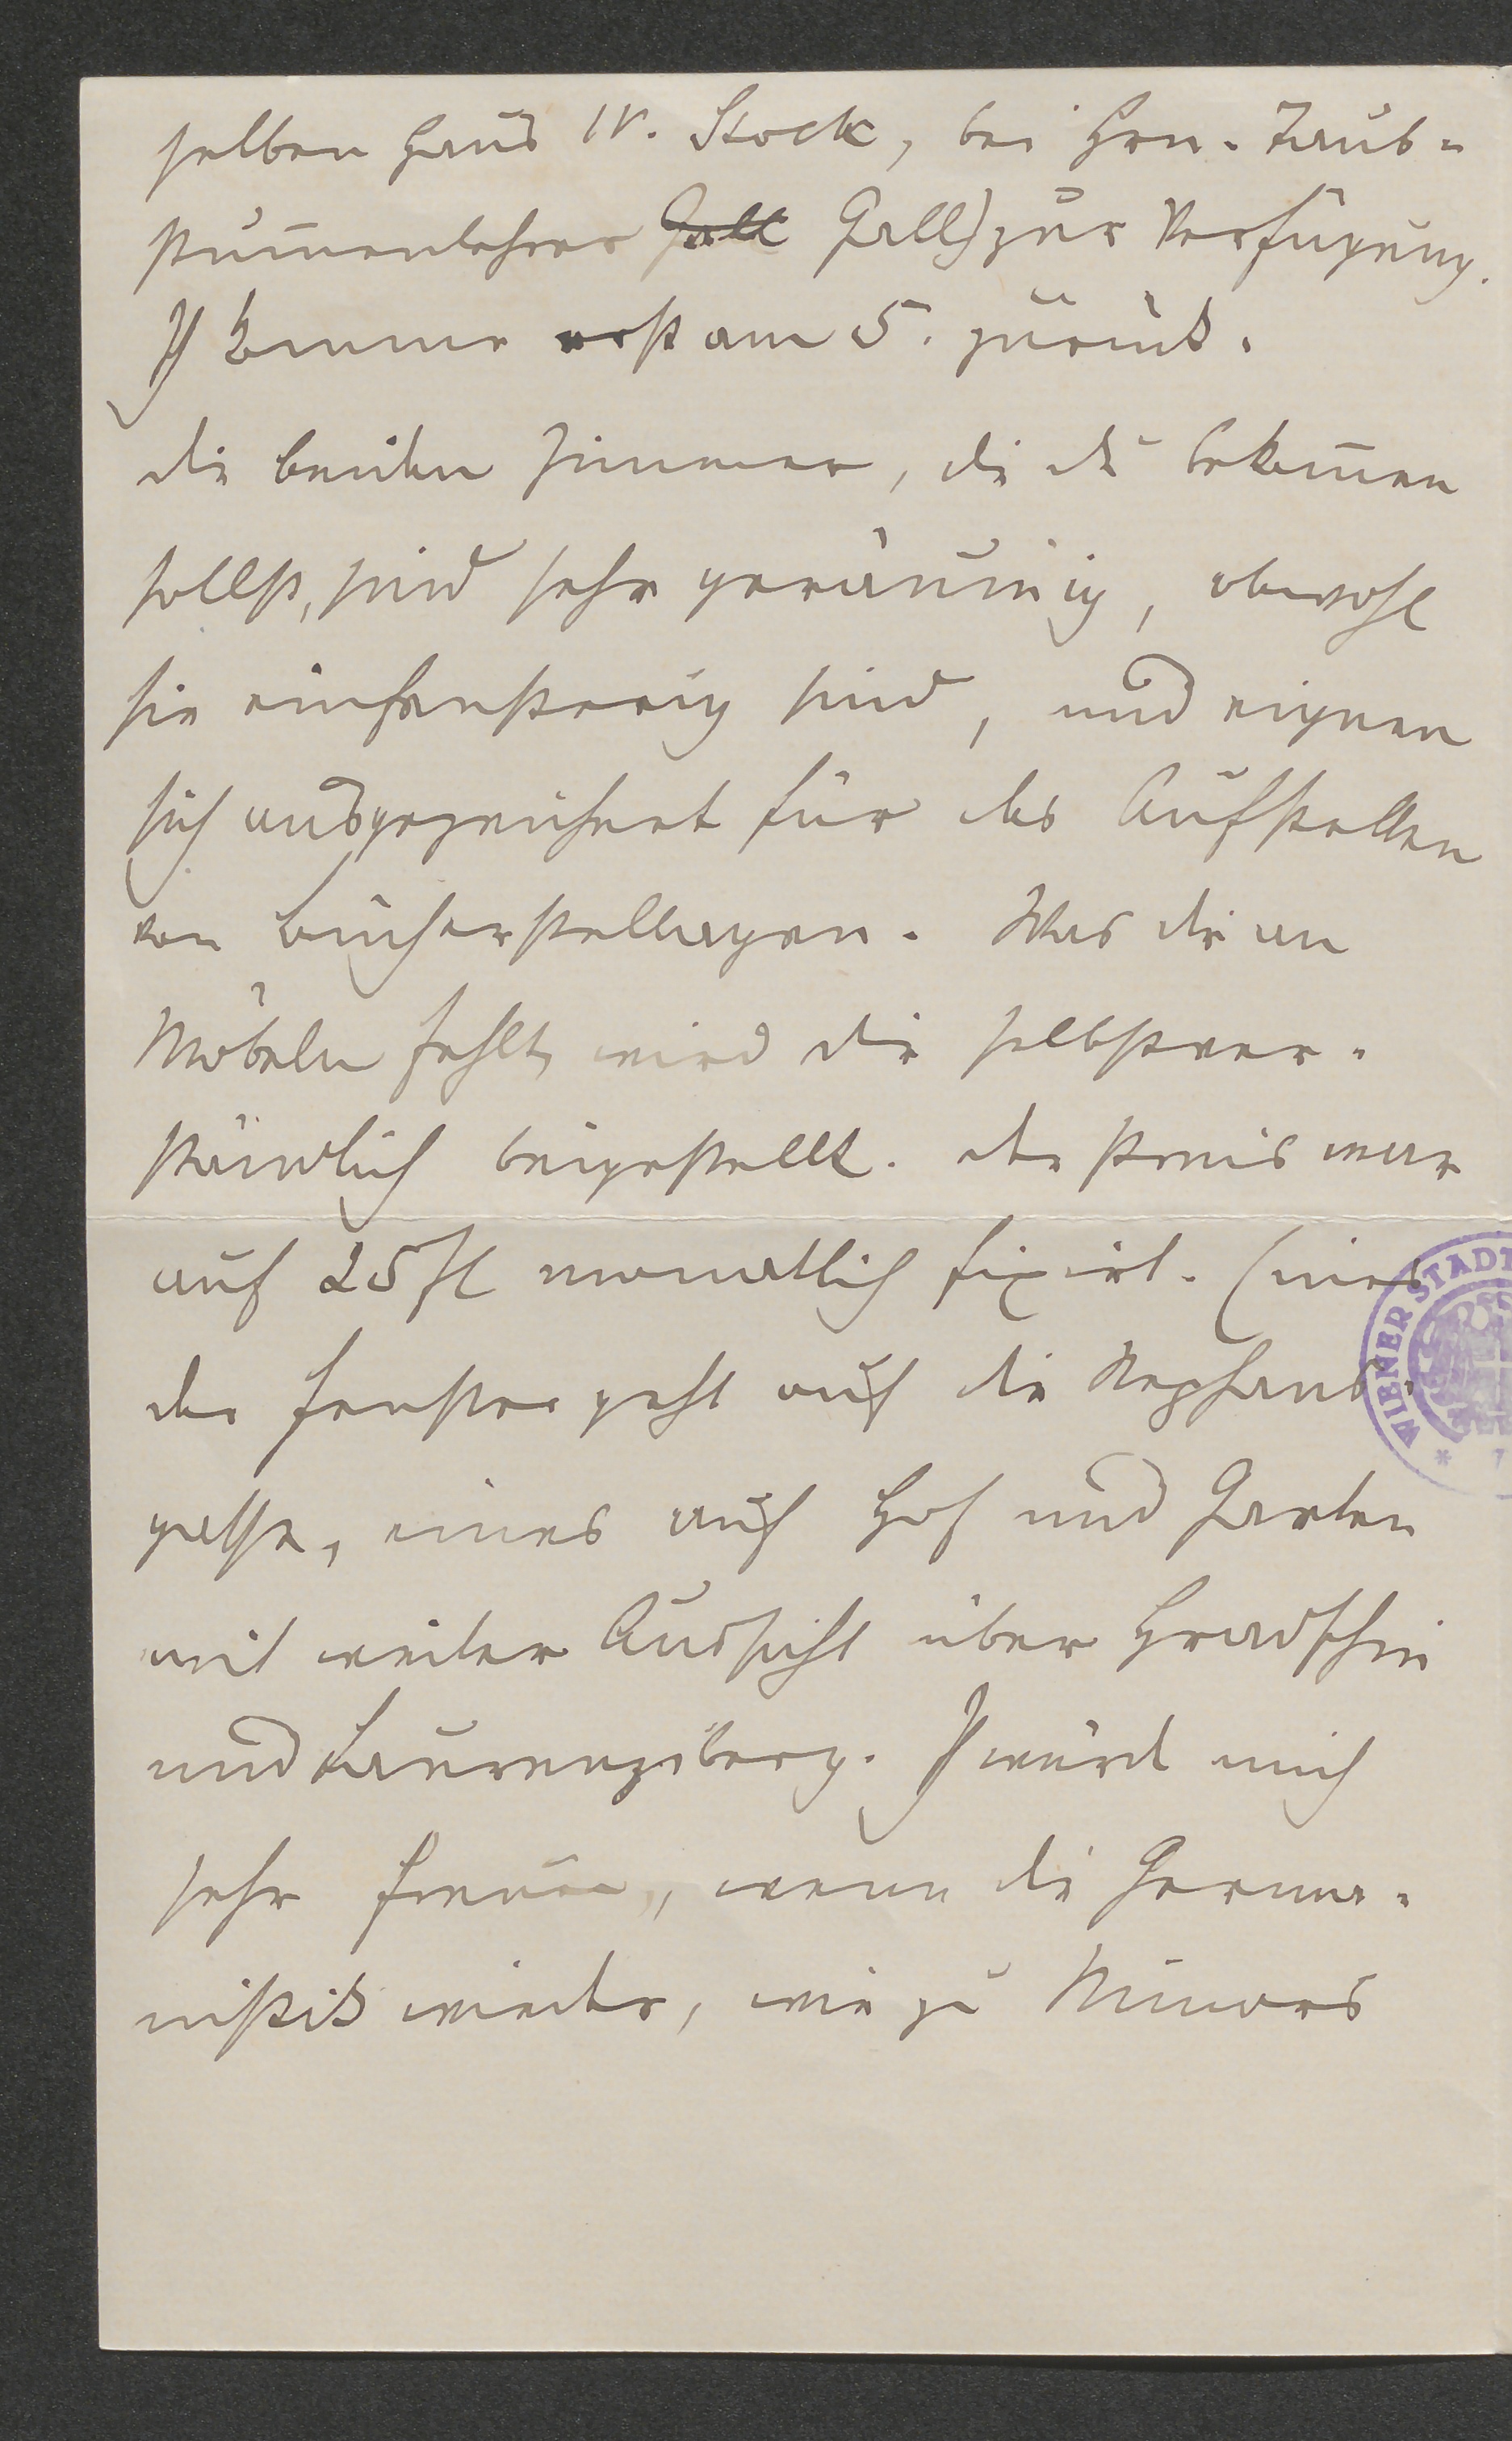 selben Haus IV. Stock, bei Hrn. Taub-
stum̄enlehrer Gall Gall) zur Verfügung.
Ich komme erst am 5. zurück.
Die beiden Zimmer, die du bekom̄en
sollst, sind sehr geräumig, obwohl
sie einfenstrig sind, und eignen
sich ausgezeichnet für das Aufstellen
von Bücherstellagen. Was dir an
Möbeln fehlt, wird dir selbstver-
ständlich beigestellt. Der Preis war
auf 25 fl monatlich fixirt. Eines
der Fenster geht auf die
gasse, eines auf Hof und Garten
mit weiter Aussicht über Hradschin
und Laurenziberg. Ich würd mich
sehr freuen, wenn die Germa-
nistik wieder, wie zu Minors
WIENER STADT
* 7